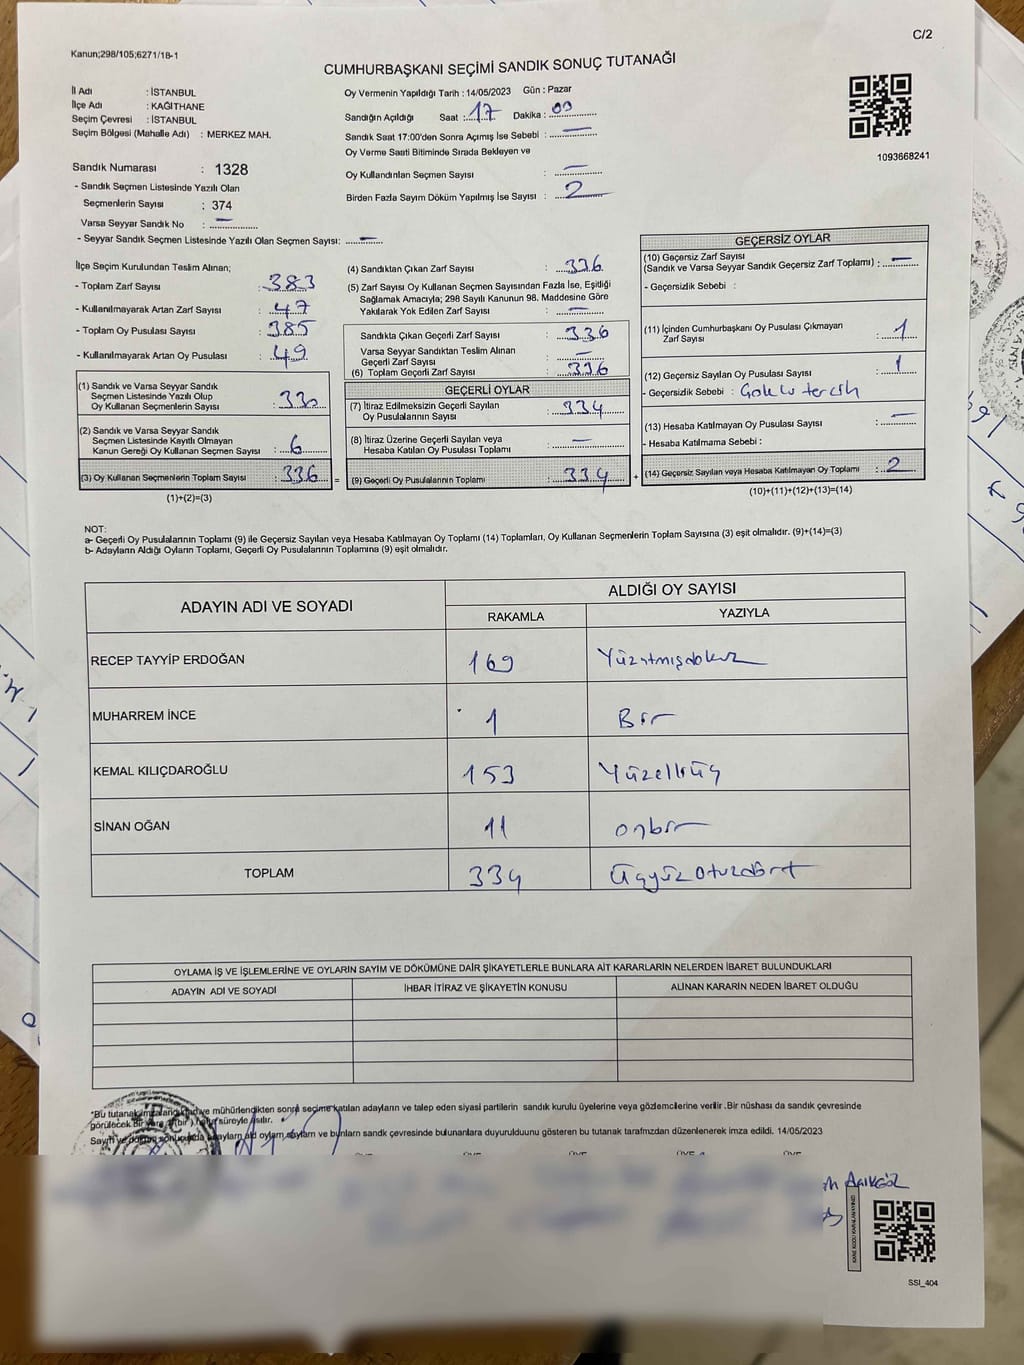 C/2
Kanun;298/105;6271/18-1
CUMHURBAŞKANI SEÇİMİ SANDIK SONUÇ TUTANAĞI
İl Adı : İSTANBUL
İlçe Adı : KAĞITHANE
Seçim Çevresi : İSTANBUL
Seçim Bölgesi (Mahalle Adı) : MERKEZ MAH.
Sandık Numarası : 1328
- Sandık Seçmen Listesinde Yazılı Olan
Seçmenlerin Sayısı : 374
Varsa Seyyar Sandık No : —
- Seyyar Sandık Seçmen Listesinde Yazılı Olan Seçmen Sayısı: —
Oy Vermenin Yapıldığı Tarih : 14/05/2023 Gün : Pazar
Sandığın Açıldığı Saat : 17 Dakika : 00
Sandık Saat 17:00'den Sonra Açımış İse Sebebi : —
Oy Verme Saati Bitiminde Sırada Bekleyen ve
Oy Kullandırılan Seçmen Sayısı : —
Birden Fazla Sayım Döküm Yapılmış İse Sayısı : 2
1093668241
İlçe Seçim Kurulundan Teslim Alınan;
- Toplam Zarf Sayısı : 383
- Kullanılmayarak Artan Zarf Sayısı : 47
- Toplam Oy Pusulası Sayısı : 385
- Kullanılmayarak Artan Oy Pusulası : 49
(1) Sandık ve Varsa Seyyar Sandık
Seçmen Listesinde Yazılı Olup
Oy Kullanan Seçmenlerin Sayısı : 330
(2) Sandık ve Varsa Seyyar Sandık
Seçmen Listesinde Kayıtlı Olmayan
Kanun Gereği Oy Kullanan Seçmen Sayısı : 6
(3) Oy Kullanan Seçmenlerin Toplam Sayısı : 336 =
(1)+(2)=(3)
(4) Sandıktan Çıkan Zarf Sayısı : 336
(5) Zarf Sayısı Oy Kullanan Seçmen Sayısından Fazla İse, Eşitliği
Sağlamak Amacıyla; 298 Sayılı Kanunun 98. Maddesine Göre
Yakılarak Yok Edilen Zarf Sayısı : —
Sandıkta Çıkan Geçerli Zarf Sayısı : 336
Varsa Seyyar Sandıktan Teslim Alınan
Geçerli Zarf Sayısı : —
(6) Toplam Geçerli Zarf Sayısı : 336
GEÇERLİ OYLAR
(7) İtiraz Edilmeksizin Geçerli Sayılan
Oy Pusulalarının Sayısı : 334
(8) İtiraz Üzerine Geçerli Sayılan veya
Hesaba Katılan Oy Pusulası Toplamı : —
(9) Geçerli Oy Pusulalarının Toplamı : 334 +
GEÇERSİZ OYLAR
(10) Geçersiz Zarf Sayısı
(Sandık ve Varsa Seyyar Sandık Geçersiz Zarf Toplamı) : —
- Geçersizlik Sebebi :
(11) İçinden Cumhurbaşkanı Oy Pusulası Çıkmayan
Zarf Sayısı : 1
(12) Geçersiz Sayılan Oy Pusulası Sayısı : 1
- Geçersizlik Sebebi : Çoklu tercih
(13) Hesaba Katılmayan Oy Pusulası Sayısı : —
- Hesaba Katılmama Sebebi :
(14) Geçersiz Sayılan veya Hesaba Katılmayan Oy Toplamı : 2
(10)+(11)+(12)+(13)=(14)
NOT:
a- Geçerli Oy Pusulalarının Toplamı (9) ile Geçersiz Sayılan veya Hesaba Katılmayan Oy Toplamı (14) Toplamları, Oy Kullanan Seçmenlerin Toplam Sayısına (3) eşit olmalıdır. (9)+(14)=(3)
b- Adayların Aldığı Oyların Toplamı, Geçerli Oy Pusulalarının Toplamına (9) eşit olmalıdır.
ADAYIN ADI VE SOYADI ALDIĞI OY SAYISI
RAKAMLA YAZIYLA
RECEP TAYYİP ERDOĞAN 169 Yüzatmışdokuz
MUHARREM İNCE 1 Bir
KEMAL KILIÇDAROĞLU 153 Yüzelliüç
SİNAN OĞAN 11 onbir
TOPLAM 334 Üçyüzotuzdört
OYLAMA İŞ VE İŞLEMLERİNE VE OYLARIN SAYIM VE DÖKÜMÜNE DAİR ŞİKAYETLERLE BUNLARA AİT KARARLARIN NELERDEN İBARET BULUNDUKLARI
ADAYIN ADI VE SOYADI İHBAR İTİRAZ VE ŞİKAYETİN KONUSU ALINAN KARARIN NEDEN İBARET OLDUĞU
*Bu tutanak imzalandıktan ve mühürlendikten sonra seçime katılan adayların ve talep eden siyasi partilerin sandık kurulu üyelerine veya gözlemcilerine verilir. Bir nüshası da sandık çevresinde
görülecek bir yere süreyle asılır.
bunların sandık çevresinde bulunanlara duyurulduunu gösteren bu tutanak tarafımızdan düzenlenerek imza edildi. 14/05/2023
AÇIKGÖZ
SSI_404